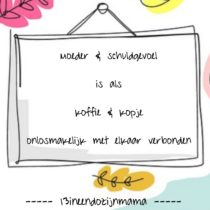 Moeder & schuldgevoel
is als
koffie & kopje
onlosmakelijk met elkaar verbonden
----- 13ineendozijnmama -----